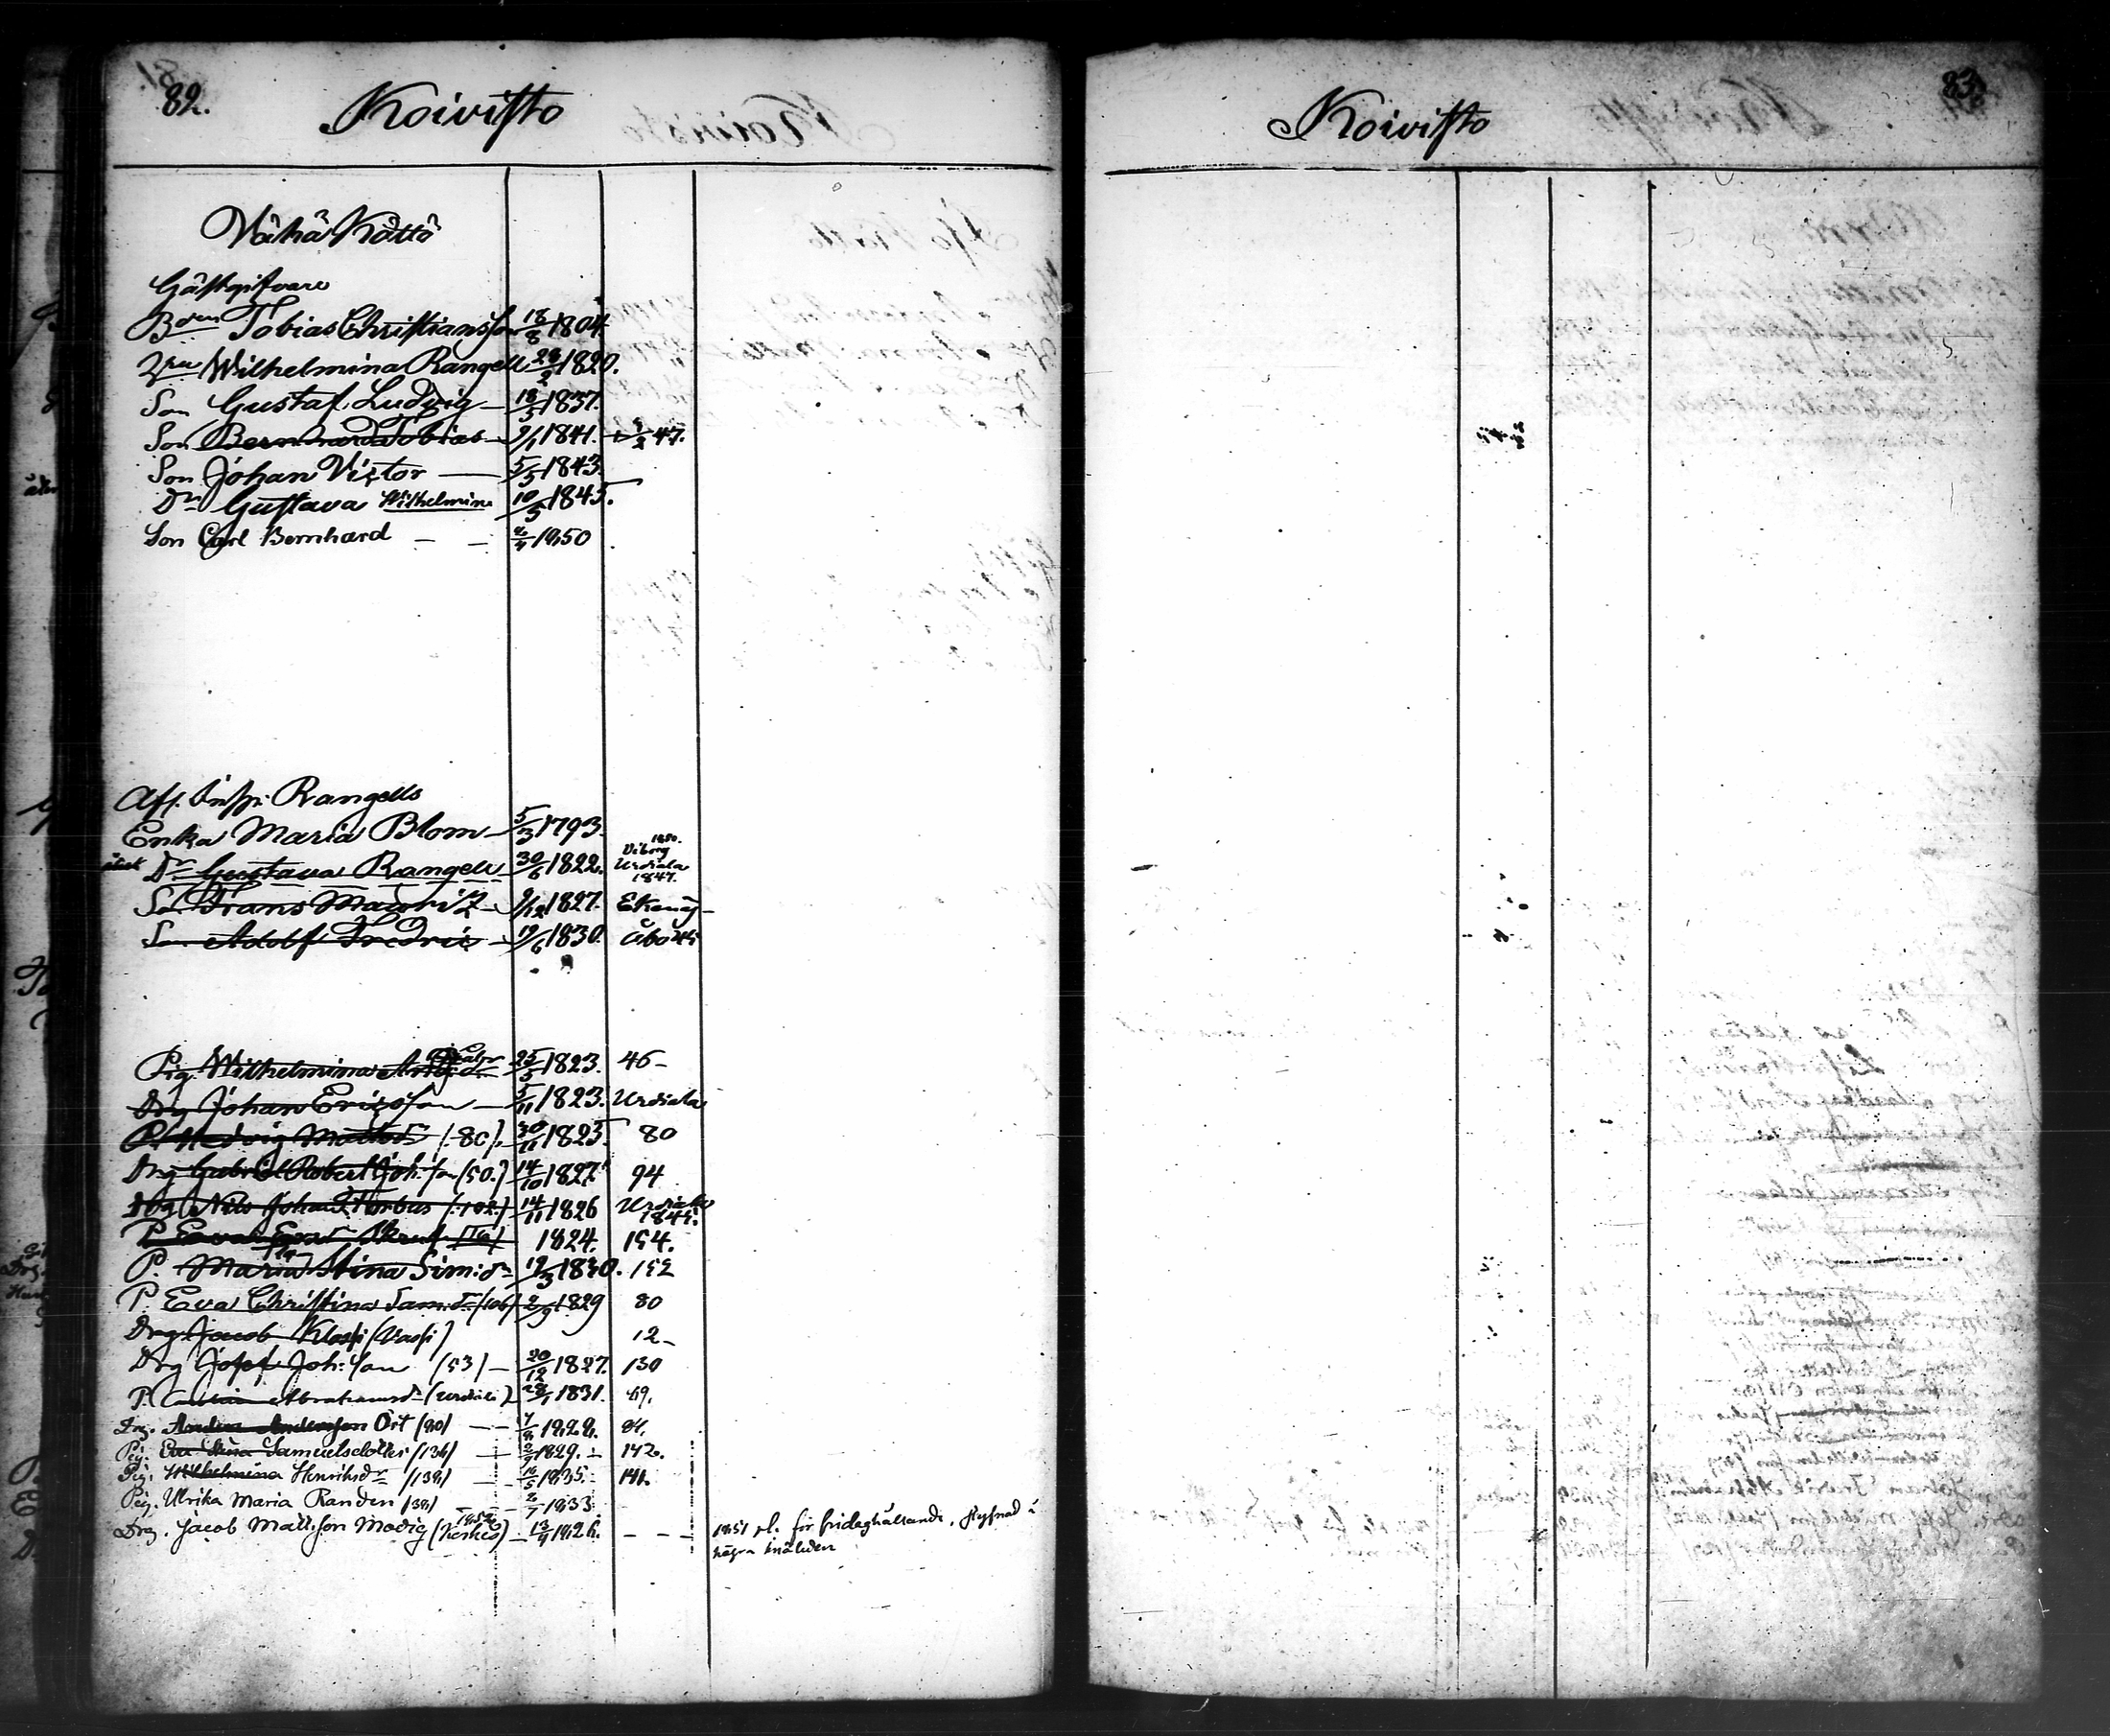 82.
Koivisto
Vähä Köttö
Gästgifvare
Bden Tobias Christiansson 18/8 1804.
2 Wilhelmina Rangell 28/2 1820.
Son Gustaf Ludvig 18/5 1837.
Son Bernhard Tobias 9/1 1841. 47.
Son Johan Victor 5/5 1843.
Dr Gustava Wilhelmina 10/5 1845.
Son Carl Bernhard 1850
Afl. Insp. Rangells
Enka Maria Blom 5/3 1793.
Dr Gustava Rangell 30/6 1822. Viborg 1850. Urdiala 1847.
Son Frans Mauritz 9/12 1827. Ekenäs
Son Adolf Fredric 19/6 1830. Åbo 45
Pig. Wilhelmina 25/5 1823. 46
Drg Johan Ericsson 5/11 1823. Urdiala
P. Hedvig Mattsdr (80). 30/11 1825 80
Drg Gabriel Robert Joh:son (50.) 14/10 1827. 94
Drg Nils Johan Forbus (102) 14/11 1826 Urdiala 1845.
P. Eva 1824. 154.
P. Maria Stina Sim:dr 19/3 1830. 152
P. Eva Christina Sam:dr (106) 2/9 1829 80
Drg. Jacob Klassi (Vassi) 12
Drg Josef Joh:son (53) 20/12 1827. 130
P. Abrahamsdr (Urdiala) 28/1 1831. 69.
Drg. Anders Andersson Ört (90) 1828. 84.
Pig. Eva Stina Samuelsdotter (136) 2/9 1829. 142.
Pig. Wilhelmina Henriksdr (139) 16/5 1835. 141.
Pig. Ulrika Maria Randen (39) 2/7 1833
Drg. Jacob Matts:son Modig (Kerkis) 1852 13/4 1826. 1851 pl. för fridaghållande, flyfnad i
några
83.
Koivisto